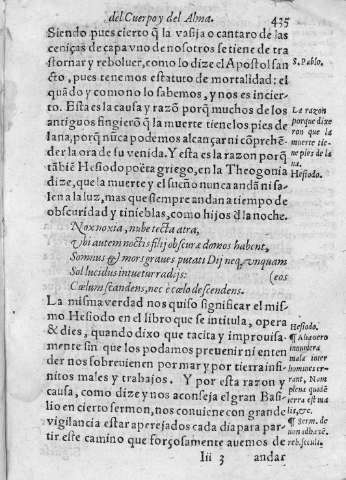 del Cuerpo y del Alma.
435
Siendo pues cierto q̃ la vasija o cantaro de las
ceniças de capa vno de nosotros se tiene de tra
stornar y reboluer, como lo dize el Apostol san
cto, pues tenemos estatuto de mortalidad: el
quãdo y como no lo sabemos, y nos es incier
to. Esta es la causa y razõ porq̃ muchos de los
antiguos fingierõ q̃ la muerte tiene los pies de
lana, porq̃ nũca podemos alcançar ni cõprehẽ
der la ora de su venida. Y esta es la razon porq̃
tãbiẽ Hesiodo poeta griego, en la Theogonia
dize, que la muerte y el sueño nunca andã ni sa
len a la luz, mas que siempre andan a tiempo de
obscuridad y tinieblas, como hijos d̃ la noche.
Nox noxia, nube tecta atra,
Vbi autem noctis filij obscuræ domos habent,
Somnus & mors graues putati Dij neq, vnquam
Sol lucidus intuetur radijs: (eos
Cœlum scandens, nec è cœlo descendens.
La misma verdad nos quiso significar el mis-
mo Hesiodo en el libro que se intitula, opera
& dies, quando dixo que tacita y improuisa-
mente sin que los podamos preuenir ni enten
der nos sobreuienen por mar y por tierra infi-
nitos males y trabajos. Y por esta razon y
causa, como dize y nos aconseja el gran Basi-
lio en cierto sermon, nos conuiene con grande
vigilancia estar aperejados cada dia para par-
tir este camino que forçosamente auemos de
Iii 3 andar
S. Pablo.
La razon
porque dixe
ron que la
muerte tie-
ne pies de la
na.
Hesiodo.
Hesiodo.
mala inter
homines er-
rant, Nam
plena quidẽ
terra est ma
lis, &c.
¶ Serm. de
non adhærẽ.
reb. seculi.